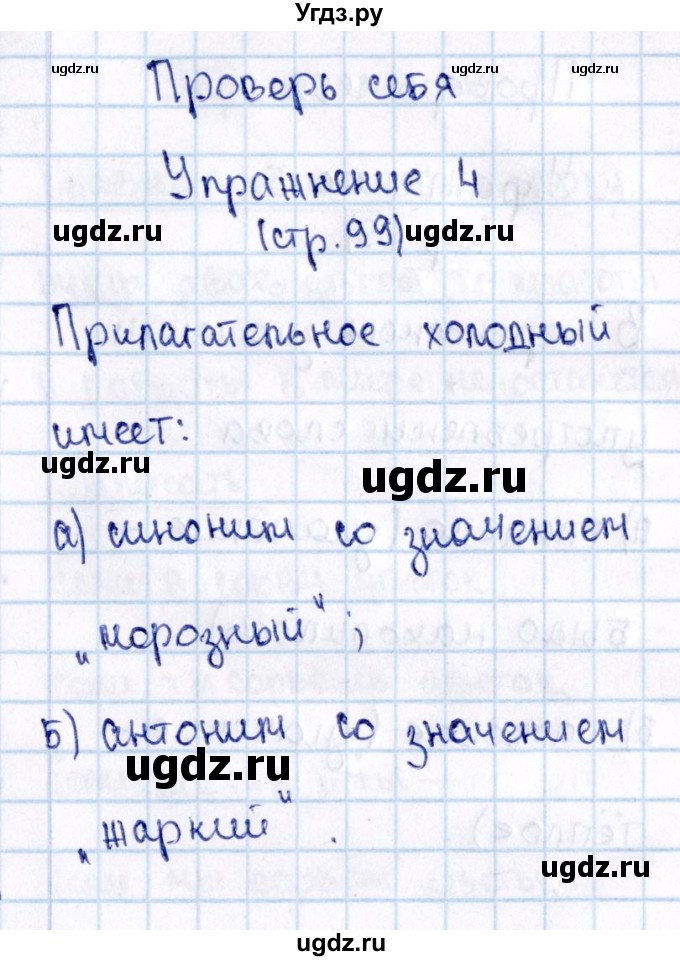 Угдз.ру
ugdz.ru ugdz.ru
Проверь себя
Упражнение 4
ugdz.ru (стр.99) ugdz.ru
Прилагательное холодный
имеет:
ugdz.ru ugdz.ru
а) синоним со значением
„морозный“;
Б) антоним со значением
ugdz.ru
„жаркий“.
ugdz.ru
ugdz.ru